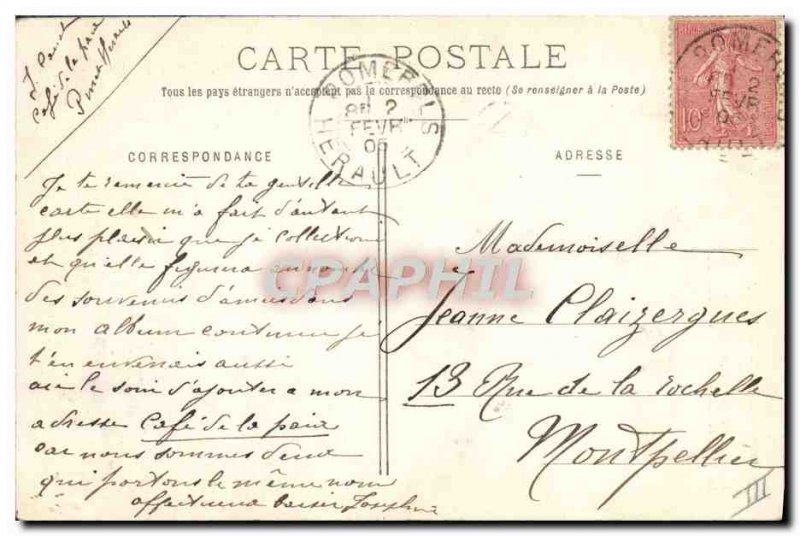 CARTE POSTALE
Tous les pays étrangers n'acceptent pas la correspondance au recto (Se renseigner à la Poste)
CORRESPONDANCE
ADRESSE
J.
Café de la paix
POMEROLS
2
FEVR
05
HERAULT
POMER
2
FEVR
10
Je te remercie de ta gentille
carte elle m'a fait d'autant
plus plaisir que je collectionne
et qu'elle figurera au nombre
des souvenirs d'amies dans
mon album continue je
t'en enverrais aussi
aie le soin d'ajouter a mon
adresse Café de la paix
car nous sommes deux
qui portons le même nom
affectueux baiser Joséphine
Mademoiselle
Jeanne Claizergues
13 Rue de la rochelle
Montpellier
III
CPAPHIL